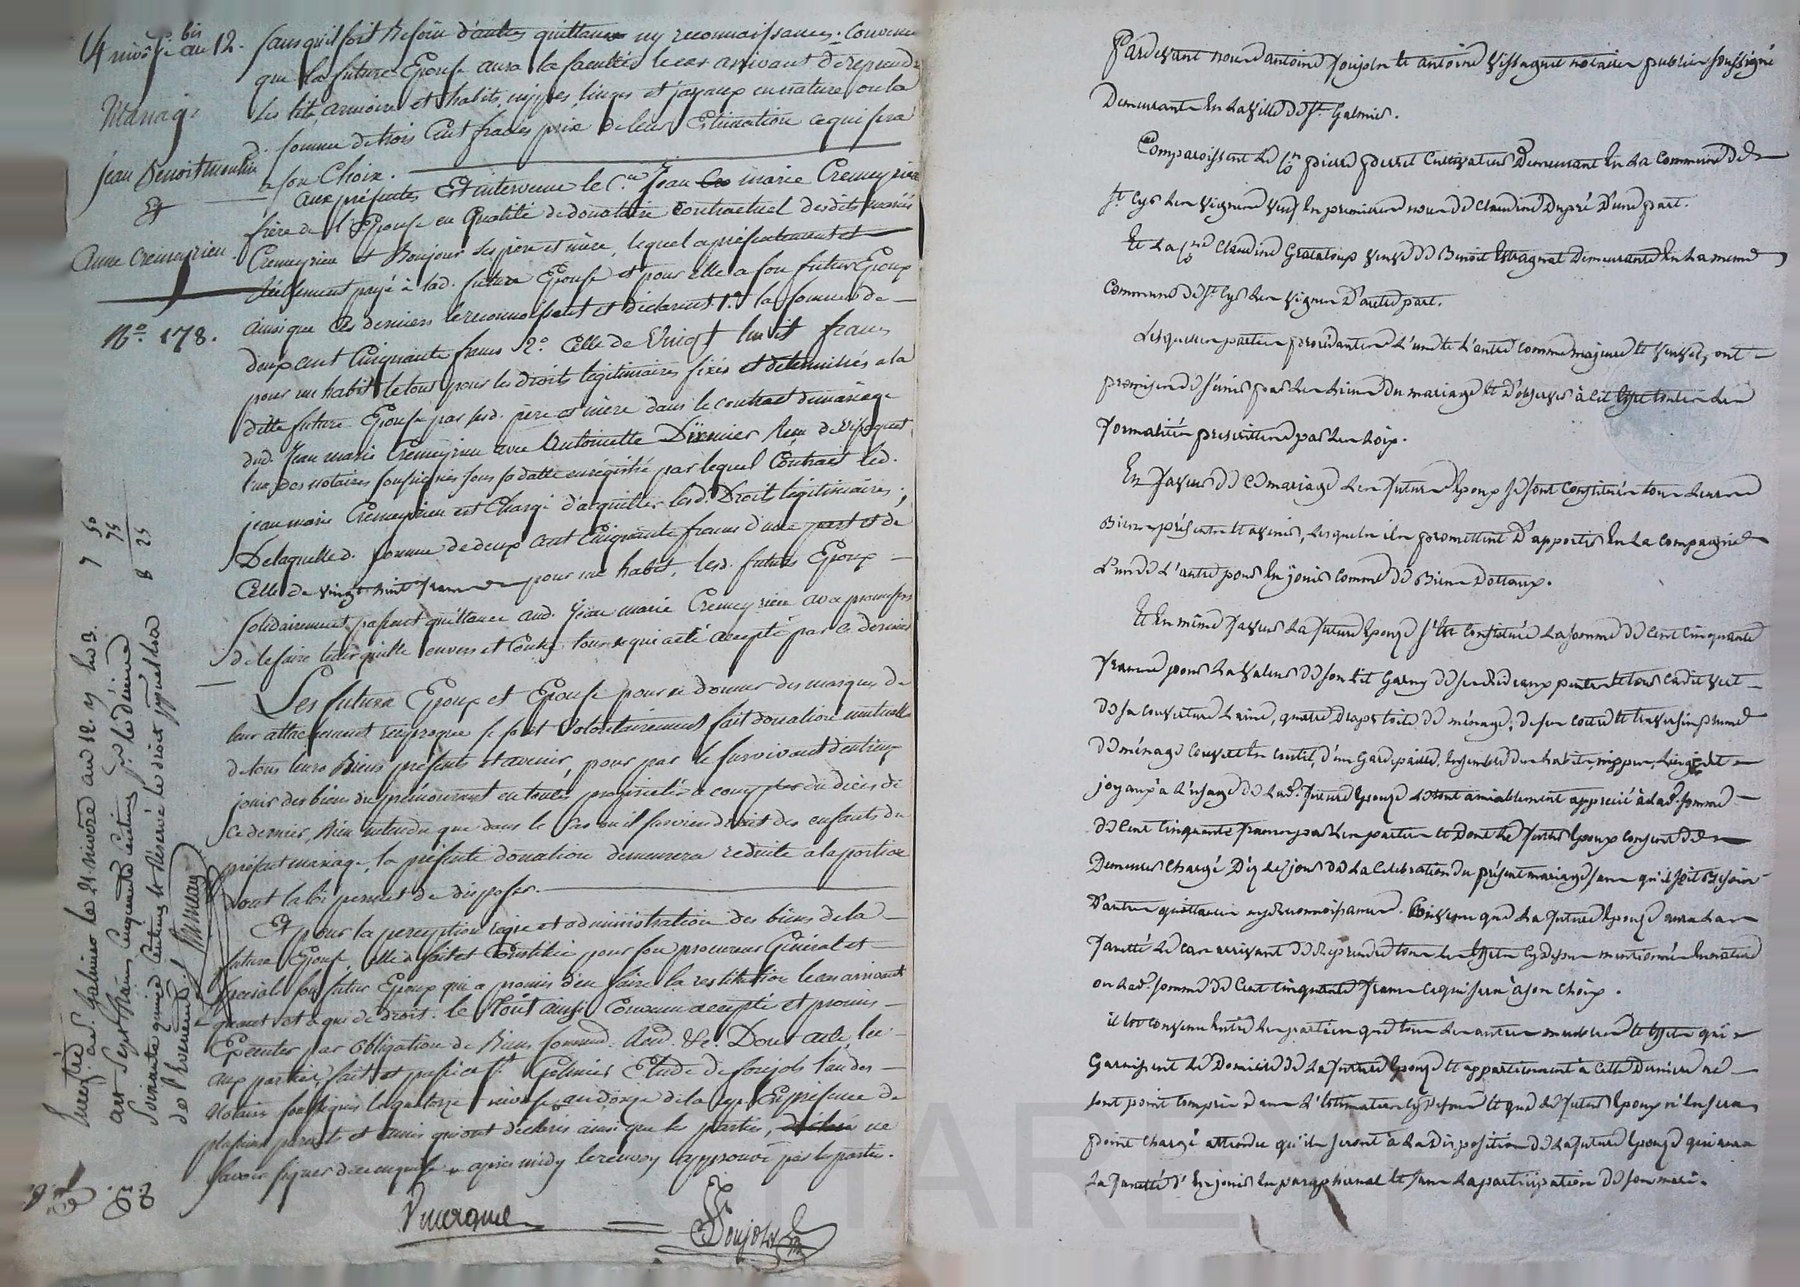 14 nivôse an 12. bis
Mariage
jean Benoit moulin
Et
anne Cremeyrieu.
N.o 178.
sans qu'il soit Besoin d'autres quittances ny reconnoissances. Convenu
que la future Epouse aura la faculté le cas arrivant de reprendre
les lit, armoire et habits, nippes linges et joyaux en nature ou la
d. somme de trois Cent francs prix de leur Estimation ce qui sera
a son Choix.
aux présentes Est intervenu le C.en Jean marie Cremeyrieu
frère de l'Epouse en qualité de donataire contractuel desdits mariés
Cremeyrieu et Bonjour ses père et mère, lequel a présentement et
réellement payé à lad. future Epouse et pour elle a son futur Epoux
ainsi que ces derniers le reconnoissent et déclarent 1.o la somme de
deux cent Cinquante francs 2.o Celle de Vingt huit francs
pour un habit le tout pour les droits légitimaires fixés et déterminés a la
ditte future Epouse par sesd. père et mère dans le contrat de mariage
dud. Jean marie Cremeyrieu avec Antoinette Reçu de Vissaguet
l'un des notaires soussignés sous sa datte enregistré par lequel Contrat led.
jean marie Cremeyrieu est Chargé d'acquitter lesd. Droits légitimaires;
De laquelle d. somme de deux cent Cinquante francs d'une part et de
Celle de vingt huit francs pour un habit, lesd. futurs Epoux
solidairement passent quittance aud. Jean marie Cremeyrieu avec promesse
de le faire tenir quitte envers et Contre tous ce qui a été accepté par ce dernier
Les futurs Epoux et Epouse pour se donner des marques de
leur attachement réciproque se sont Volontairement fait donation mutuelle
de tous leurs Biens présents et avenir, pour par le survivant d'entreux
jouir des biens du prémourant en toute propriété a compter du décès de
ce dernier, Bien entendu que dans le Cas ou il surviendroit des enfants du
présent mariage, la présente donation demeurera reduite a la portion
dont la loi permet de disposer.
Et pour la perception regie et administration des biens de la
future Epouse, elle a fait et Constitué pour son procureur Général et
special son futur Epoux qui a promis d'en faire la restitution le cas arrivant
quant et a qui de droit. le tout ainsi Convenu accepté et promis
Executer par obligation de Biens soumis. Ren. &c. Dont acte lu
aux parties, fait et passé a S.t Galmier Etude de soujols l'un des
Notaires soussignés le quatorze nivose, an douze de la rep. En présence de
plusieurs parents et amis qui ont déclarés ainsi que les parties, ne
savoir signer de ce enquis apres midy le renvoy approuvé par les parties.
Vissaguet Soujols
Enregistré aud. Galmier le 21 nivôse an 12. 7 50
75
8 25
reçu Sept francs Cinquante Centimes p.r le
Soixante quinze Centimes et Réservé le droit
de l'Evenement.
Pardevant nous antoine soujols et antoine Vissaguet notaires publics soussignés
Demeurants En la ville de S.t Galmier.
Comparoissent Le C.en pierre perret Cultivateur Demeurant En la Commune de
S.t Cyr les Vignes Veuf En premieres noces de Claudine Dupré D'une part.
Et La C.ne Claudine Grataloup Veuve de Benoit Estragnat Demeurante En la meme
Commune de S.t Cyr les Vignes D'autre part.
Lesquelles parties procédantes L'une et L'autre comme majeures et Veuves, ont
promis de s'unir par les Liens du mariage et D'observer à cet effet toutes les
Formalités prescrittes par les Loix.
En faveur de Ce mariage Les futurs Epoux se sont Constitués tous Leurs
Biens présents et avenir, Lesquels ils promettent D'apporter En la Compagnie
L'un de L'autre pour En jouir comme de Biens Dottaux.
Et En même faveur La future Epouze s'Est Constituée La somme de Cent Cinquante
francs pour La Valeur de son Lit Garny de ses Rideaux cadis vert
de sa couverture Laine, quatre Draps toile de ménage, de son coitre et traversin plume
de ménage couvert En coutil, d'un Gardepaille, Ensemble Des habits, nippes, Linge et
joyaux à L'usage de Lad. future Epouze Le tout amiablement apprécié à Lad. somme
de Cent Cinquante francs par Les parties et Dont Le futur Epoux consent de
Demeurer chargé Dès Le jour de La Célébration du présent mariage sans qu'il soit Besoin
D'autre quittance ny Reconnoissance. Convenu que La future Epouze aura La
Faculté Le cas arrivant de Reprendre tous les Effets cy Dessus mentionnés En nature
ou Lad. somme de Cent Cinquante francs ce qui sera à son Choix.
il Est convenu Entre Les parties que tous Les autres meubles et Effets qui
Garnissent Le Domicile de La future Epouze et appartiennent à Cette Derniere ne
sont point Compris dans L'Estimation cy Dessus et que Le futur Epoux n'En sera
point Chargé attendu qu'ils seront à La Disposition de La future Epouze qui aura
La Faculté D'En jouir En paraphernal et sans La participation de son mari.